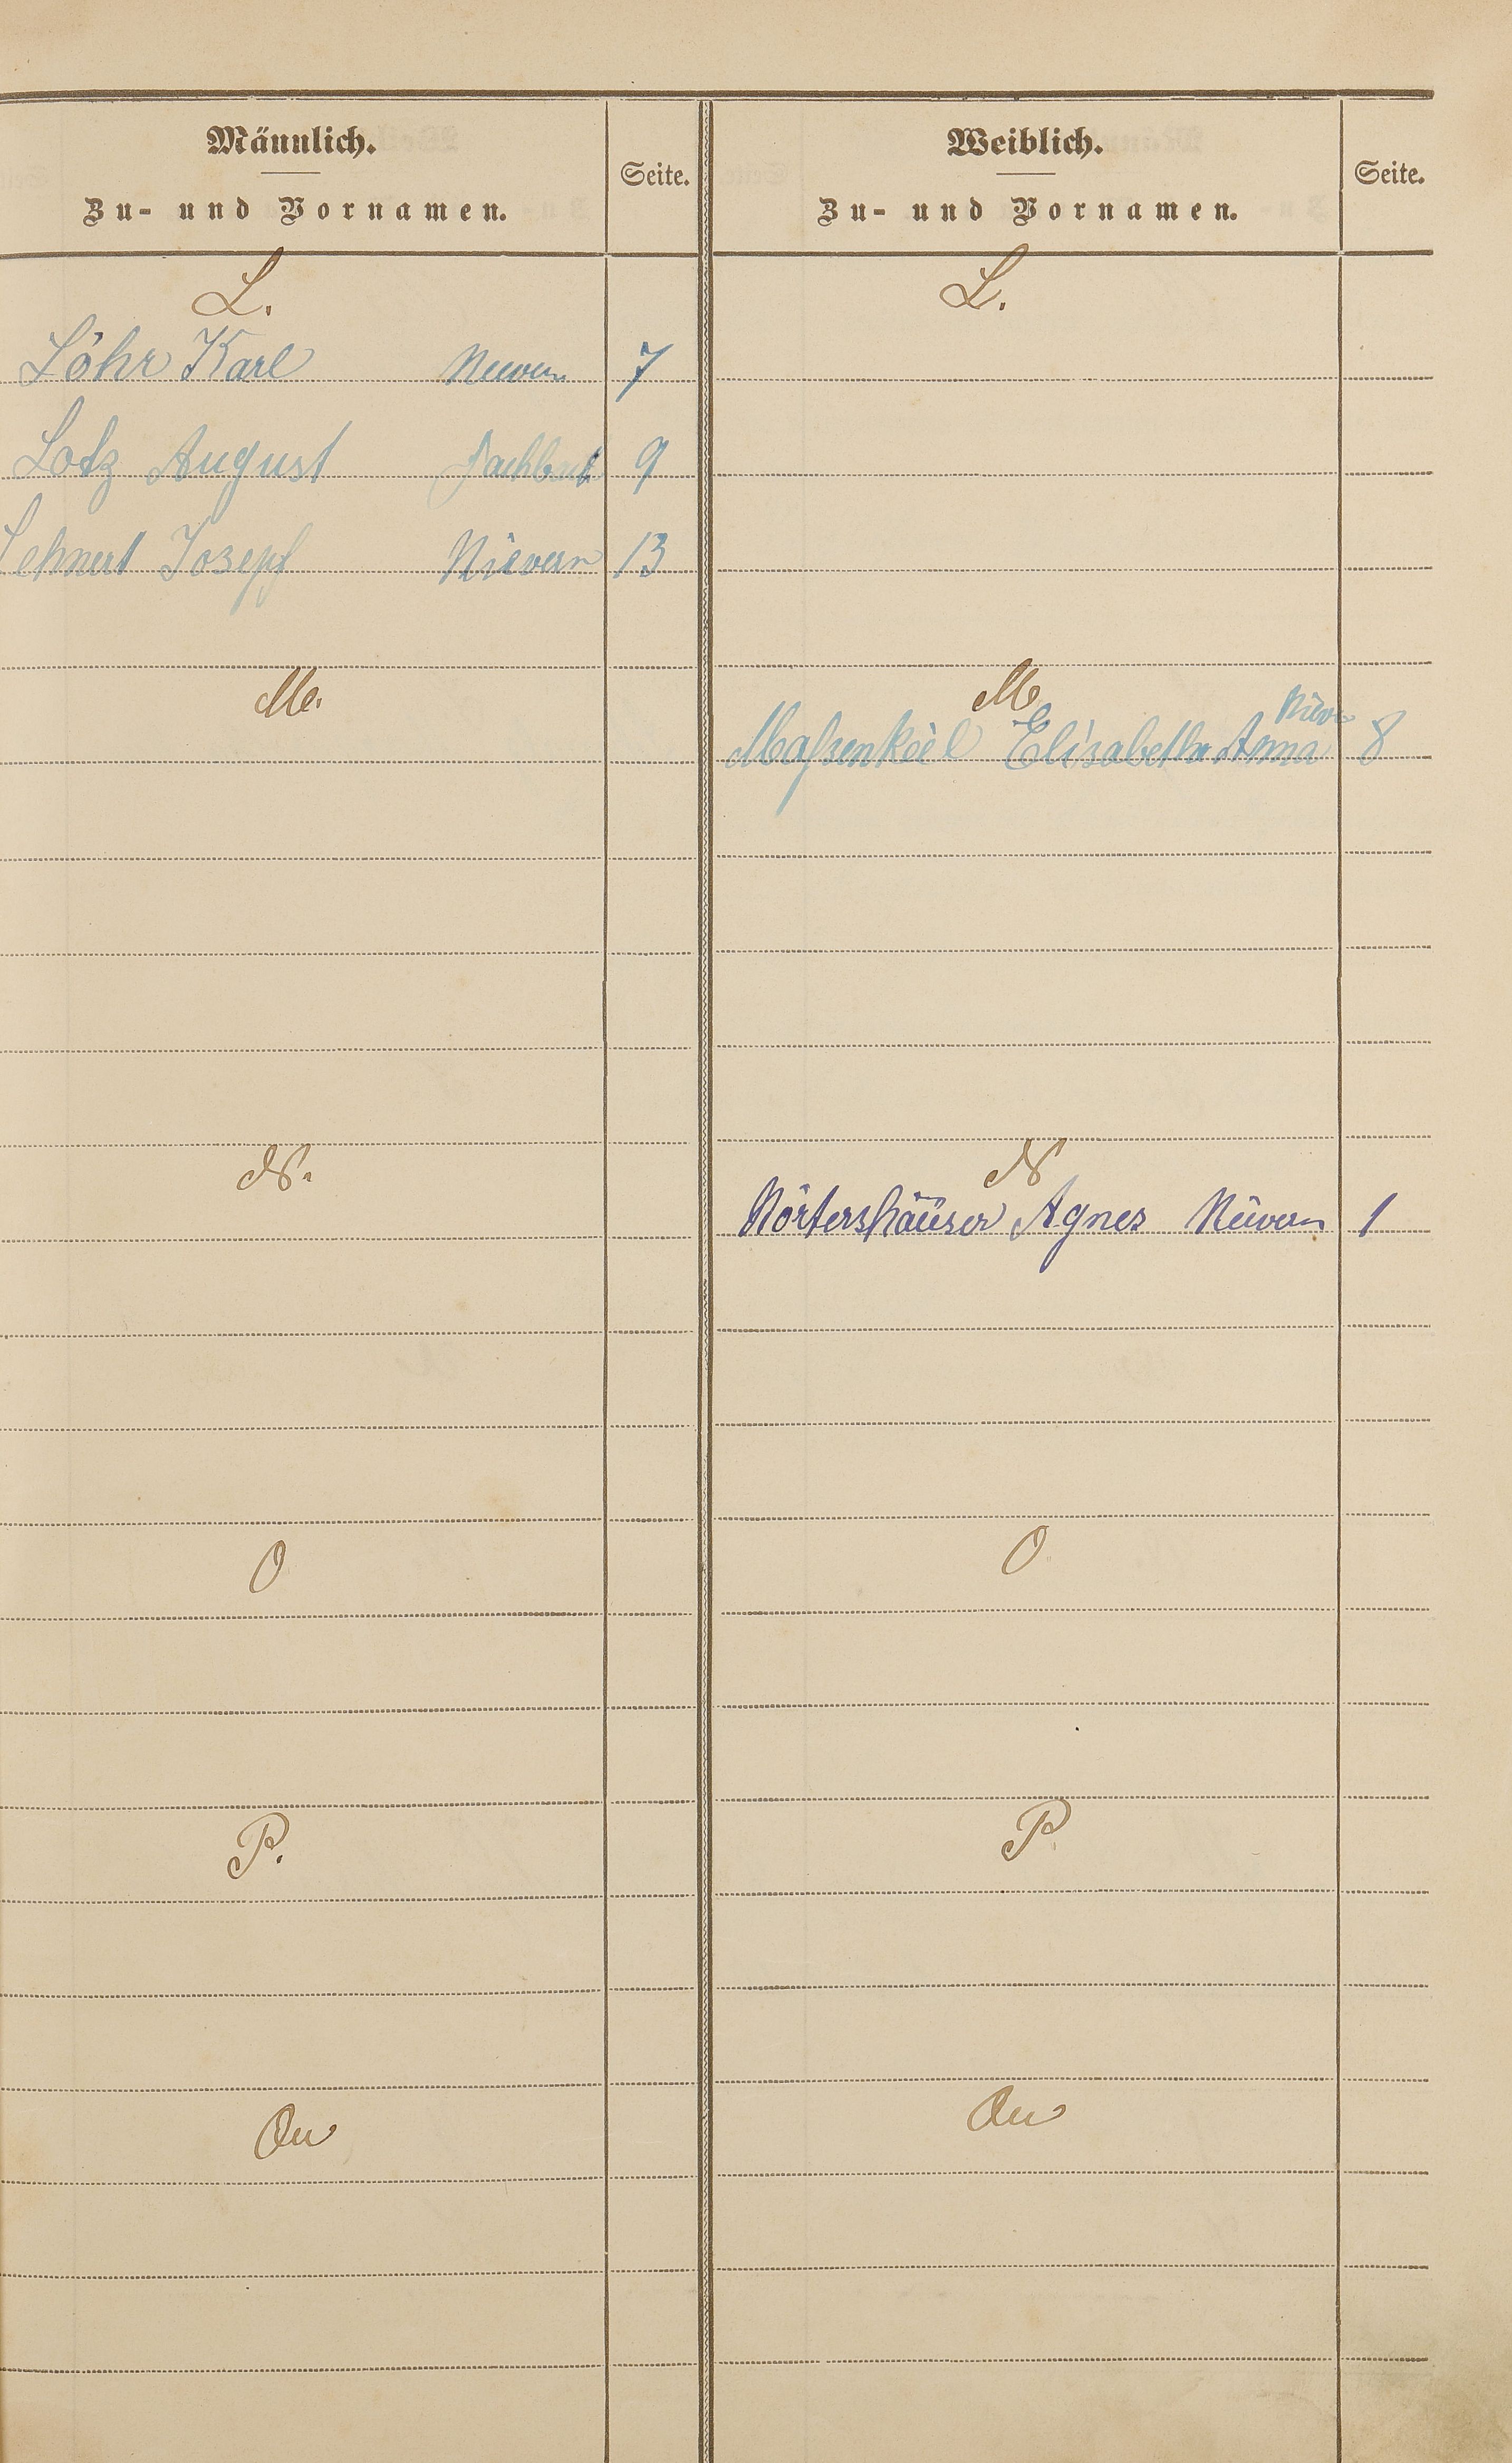 Männlich.
Zu- und Vornamen.
Seite.
L.
Löhr Karl Nievern 7
Lotz August Fachbach 9
Lehnert Josepf Nievern 13
M.
N.
O
P.
Qu
Weiblich.
Zu- und Vornamen.
Seite.
L.
M
Nievern
Maßenkeil Elisabetha Anna 8
N
Nörtershäuser Agnes Nievern 1
O
P
Qu